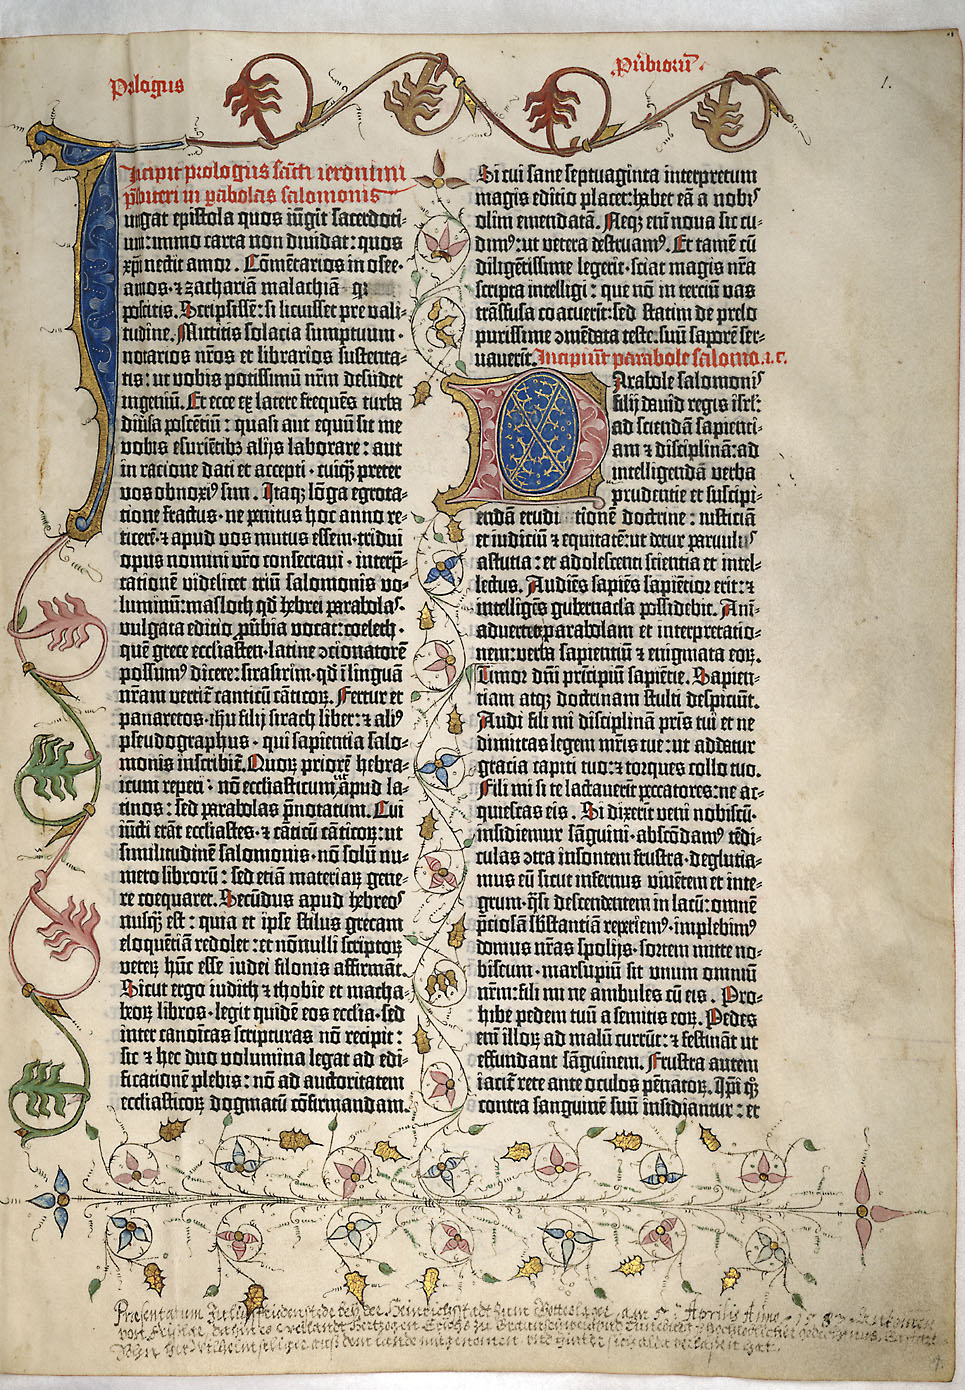 Prologus
Prouerbiorū
1.
Incipit prologus sācti ieronimi
presbiteri in parabolas salomonis
Iungat epistola quos iūgit sacerdoti-
um: immo carta non diuidat: quos
xp̄i nectit amor. Cōmētarios in osee·
amos· ⁊ zachariā malachiā·
poscitis. Scripsissē: si licuisset pre vali-
tudine. Mittitis solacia sumptuum·
notarios nr̄os et librarios sustenta-
tis: ut vobis potissimū nr̄m desudet
ingeniū. Et ecce ex latere frequēs turba
diūsa poscētiū: quasi aut equū sit me
vobis esuriētibꝫ alijs laborare: aut
in ratione dati et accepti· cuiqꝫ preter
vos obnoxiꝰ sim. Itaqꝫ lōga egrota-
tione fractus· ne penitus hoc anno re-
ticerē· ⁊ apud vos mutus essem· tridui
opus nomini vr̄o consecraui· interp̄-
tationē videlicet triū salomonis vo-
luminū: masloth qd̄ hebrei parabolas·
vulgata editio ꝓuerbia vocat: coeleth·
quē grece ecclīasten· latine ↄtionatorē
possumꝰ dicere: sirasirim· qd̄ ī linguā
nr̄am vertit̄ canticū cāticoꝝ. Fertur et
panaretos· ihū filij sirach liber: ⁊ aliꝰ
pseudographus· qui sapientia salo-
monis inscribit̄. Quoꝝ priorē hebra-
icum reperi· nō ecclesiasticum ut apud la-
tinos: sed parabolas p̄notatum. Cui
iūcti erāt ecclesiastes· ⁊ cāticū cāticoꝝ: ut
similitudinē salomonis· nō solū nu-
mero librorū: sed etiā materiaꝝ gene-
re coequaret. Secūdus apud hebreos
nusqꝫ est: quia et ipse stilus grecam
eloquētiā redolet: et nōnulli scriptoꝝ
veteꝝ hūc esse iudei filonis affirmāt.
Sicut ergo iudith ⁊ thobie et macha-
beoꝝ libros· legit quidē eos ecclīa· sed
inter canonīcas scripturas nō recipit:
sic ⁊ hec duo volumina legat ad edi-
ficationē plebis: nō ad auctoritatem
ecclīasticoꝝ dogmatū cōfirmandam.
Si cui sane septuaginta interpretum
magis editio placet: habet eā a nobis
olim emendatā. Neqꝫ enī noua sic cu-
dimꝰ: ut vetera destruamꝰ. Et tamē cū
diligētissime legerit· sciat magis nr̄a
scripta intelligi: que nō in terciū vas
trāsfusa coacuerit: sed statim de prelo
purissime ↄmēdata teste: suū saporē ser-
uauerit. Incipiūt parabole salomōis
Parabole salomonis
filij dauid regis isrl̄:
ad sciendā sapienti-
am ⁊ disciplinā: ad
intelligendā verba
prudentie et suscipi-
endā eruditionē doctrine: iusticiā
et iudiciū ⁊ equitatē: ut detur paruulis
astutia: et adolescenti scientia et intel-
lectus. Audiēs sapiēs sapiētior erit: ⁊
intelligēs gubernacula possidebit. Ani-
aduertet parabolam et interpretatio-
nem: verba sapientiū ⁊ enigmata eoꝝ.
Timor dn̄i principiū sapiētie. Sapien-
tiam atqꝫ doctrinam stulti despiciūt.
Audi fili mi disciplinā pr̄is tui et ne
dimittas legem mr̄is tue: ut addatur
gracia capiti tuo: ⁊ torques collo tuo.
Fili mi si te lactauerit pcc̄atores: ne ac-
quiescas eis. Si dixerīt veni nobiscū·
insidiemur sāguini· abscōdamꝰ tēdi-
culas ↄtra insontem frustra· deglutia-
mus eū sicut infernus viuētem et inte-
grum· q̄si descendentem in lacū: omnē
p̄ciosā sb̄stantiā reperiemꝰ· implebimꝰ
domus nr̄as spolijs· sortem mitte no-
biscum· marsupiū sit vnum omniū
nr̄m: fili mi ne ambules cū eis. Pro-
hibe pedem tuū a semitis eoꝝ. Pedes
enī illoꝝ ad malū currūt: ⁊ festināt ut
effundant sāguinem. Frustra autem
iacit̄ rete ante oculos pēnatoꝝ. Ip̄i qꝫ
contra sanguinē suū insidiantur: et
Presentatum